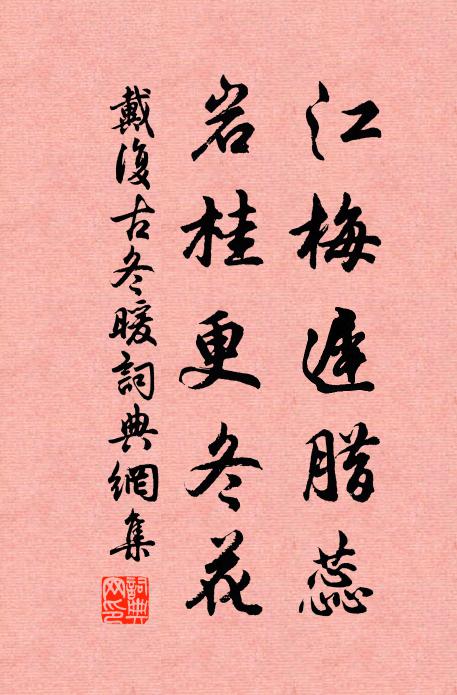 江梅遅腊蕊
岩桂更冬花
戴復古冬暖詞典網集
詞典网印